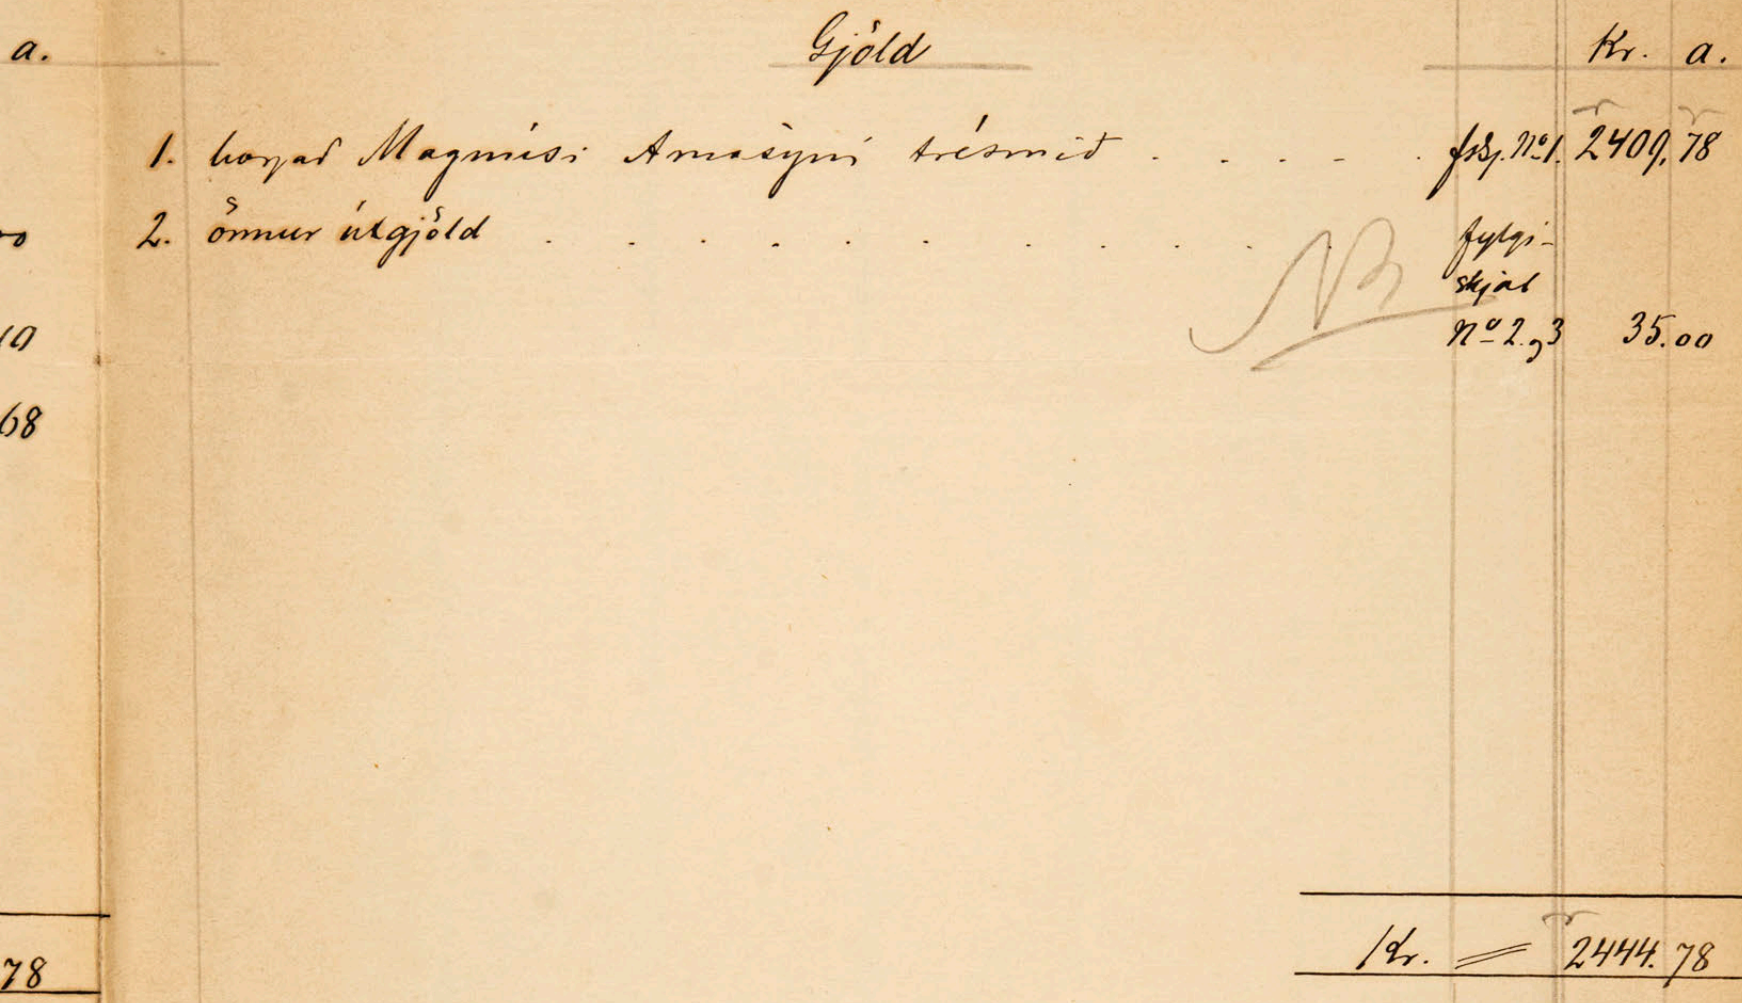 a. Gjöld Kr. a.
1. borgað Magnúsi Árnasyni trésmið . . . . . fskj. No 1. 2409.78
2. önnur útgjöld . . . . . . . . . . fylgi-
skjal
NB
No 2 og 3 35.00
68
78 Kr. = 2444.78